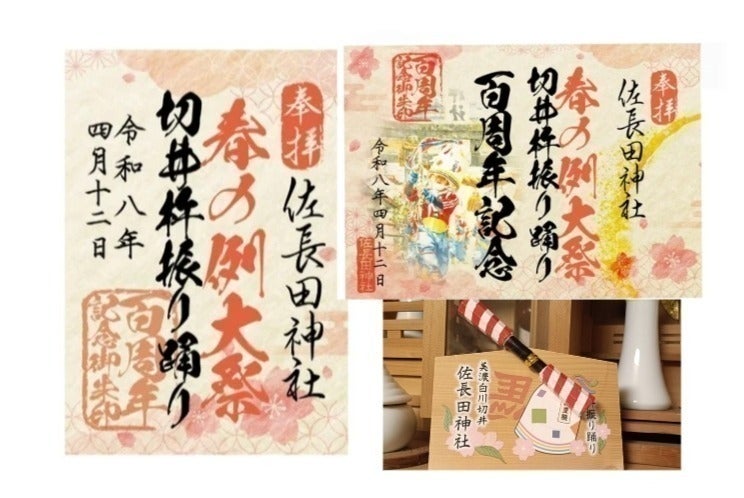 奉拝
佐長田神社
春の例大祭
切井杵振り踊り
令和八年
四月十二日
百周年
記念御朱印
奉拝
佐長田神社
春の例大祭
切井杵振り踊り
百周年記念
百周年
記念御朱印
令和八年四月十二日
佐長田神社
美濃白川切井
佐長田神社
振り踊り